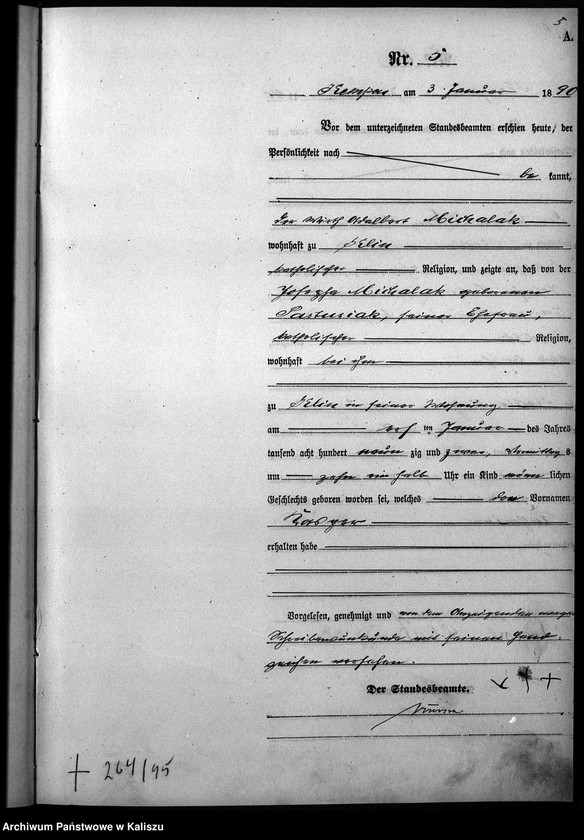 5
A.
Nr. 5
Kempen am 3 Januar 1890
Vor dem unterzeichneten Standesbeamten erschien heute, der
Persönlichkeit nach
be kannt,
der Wirth Adalbert Michalak
wohnhaft zu
katholischer Religion, und zeigte an, daß von der
Josepha Michalak geborenen
Pastusiak, seiner Ehefrau,
katholischer Religion,
wohnhaft bei ihm
zu in seiner Wohnung
am ten Januar des Jahres
tausend acht hundert neun zig und zwar, Vormittag s
um zehn ein halb Uhr ein Kind männ lichen
Geschlechts geboren worden sei, welches den Vornamen
Kasper
erhalten habe
Vorgelesen, genehmigt und von dem Anzeigenden wegen
Schreibensunkunde mit seinem Hand-
zeichen versehen.
Der Standesbeamte.
+ 264/95
Archiwum Państwowe w Kaliszu